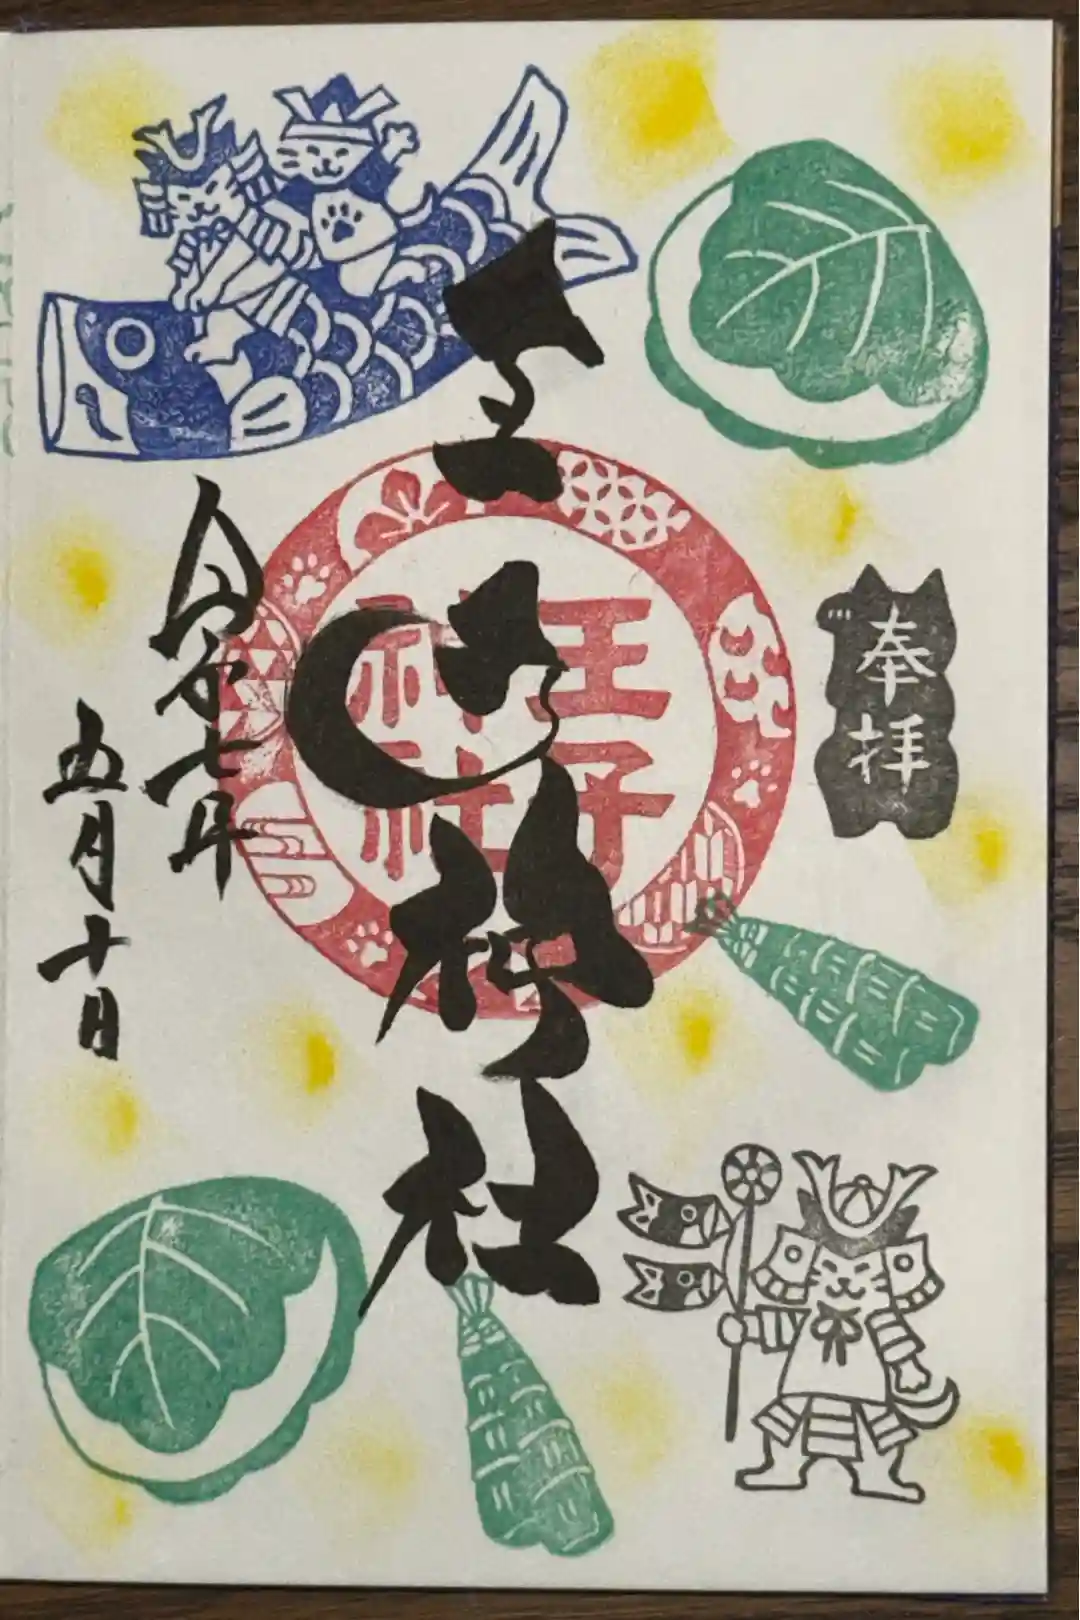 奉拝
王子神社
王子
神社
令和七年
五月十日